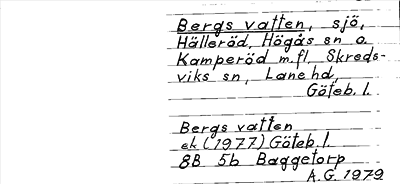 Bergs vatten, sjö,
Hälleröd, Högås sn o.
Kamperöd m.fl. Skreds-
viks sn, Lane hd,
Göteb. l.
Bergs vatten
ek (1977) Göteb. l.
8B 5b Baggetorp
A.G. 1979